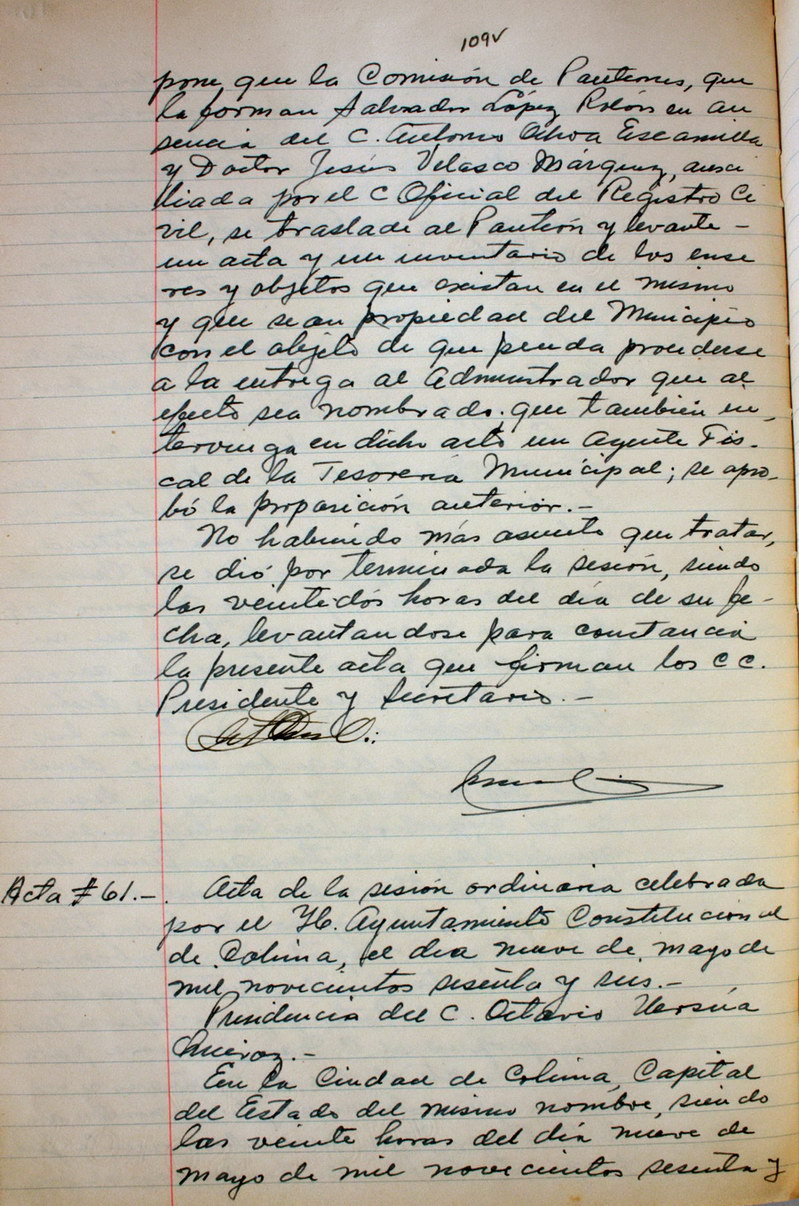 109v
pone que la Comisión de Panteones, que
la forman Salvador López Rolón en au
sencia del C. Antonio Ochoa Escamilla
y Doctor Jesús Velasco Márquez, auxi
liada por el C Oficial del Registro Ci
vil, se traslade al Panteón y levante -
un acta y un inventario de los ense
res y objetos que existan en el mismo
y que sean propiedad del Municipio
con el objeto de que pueda procederse
a la entrega al Administrador que al
efecto sea nombrado. que también in-
tervenga en dicho acto un Agente Fis-
cal de la Tesorería Municipal; se apro-
bó la proposición anterior.-
No habiendo más asunto que tratar,
se dió por terminada la sesión, siendo
las veintidós horas del día de su fe-
cha, levantandose para constancia
la presente acta que firman los CC.
Presidente y Secretario.-
Acta # 61.- Acta de la sesión ordinaria celebrada
por el H. Ayuntamiento Constitucional
de Colima, el día nueve de mayo de
mil novecientos sesenta y seis.-
Presidencia del C. Octavio Ursúa
Quiroz.-
En la Ciudad de Colima, Capital
del Estado del mismo nombre, siendo
las veinte horas del día nueve de
mayo de mil novecientos sesenta y